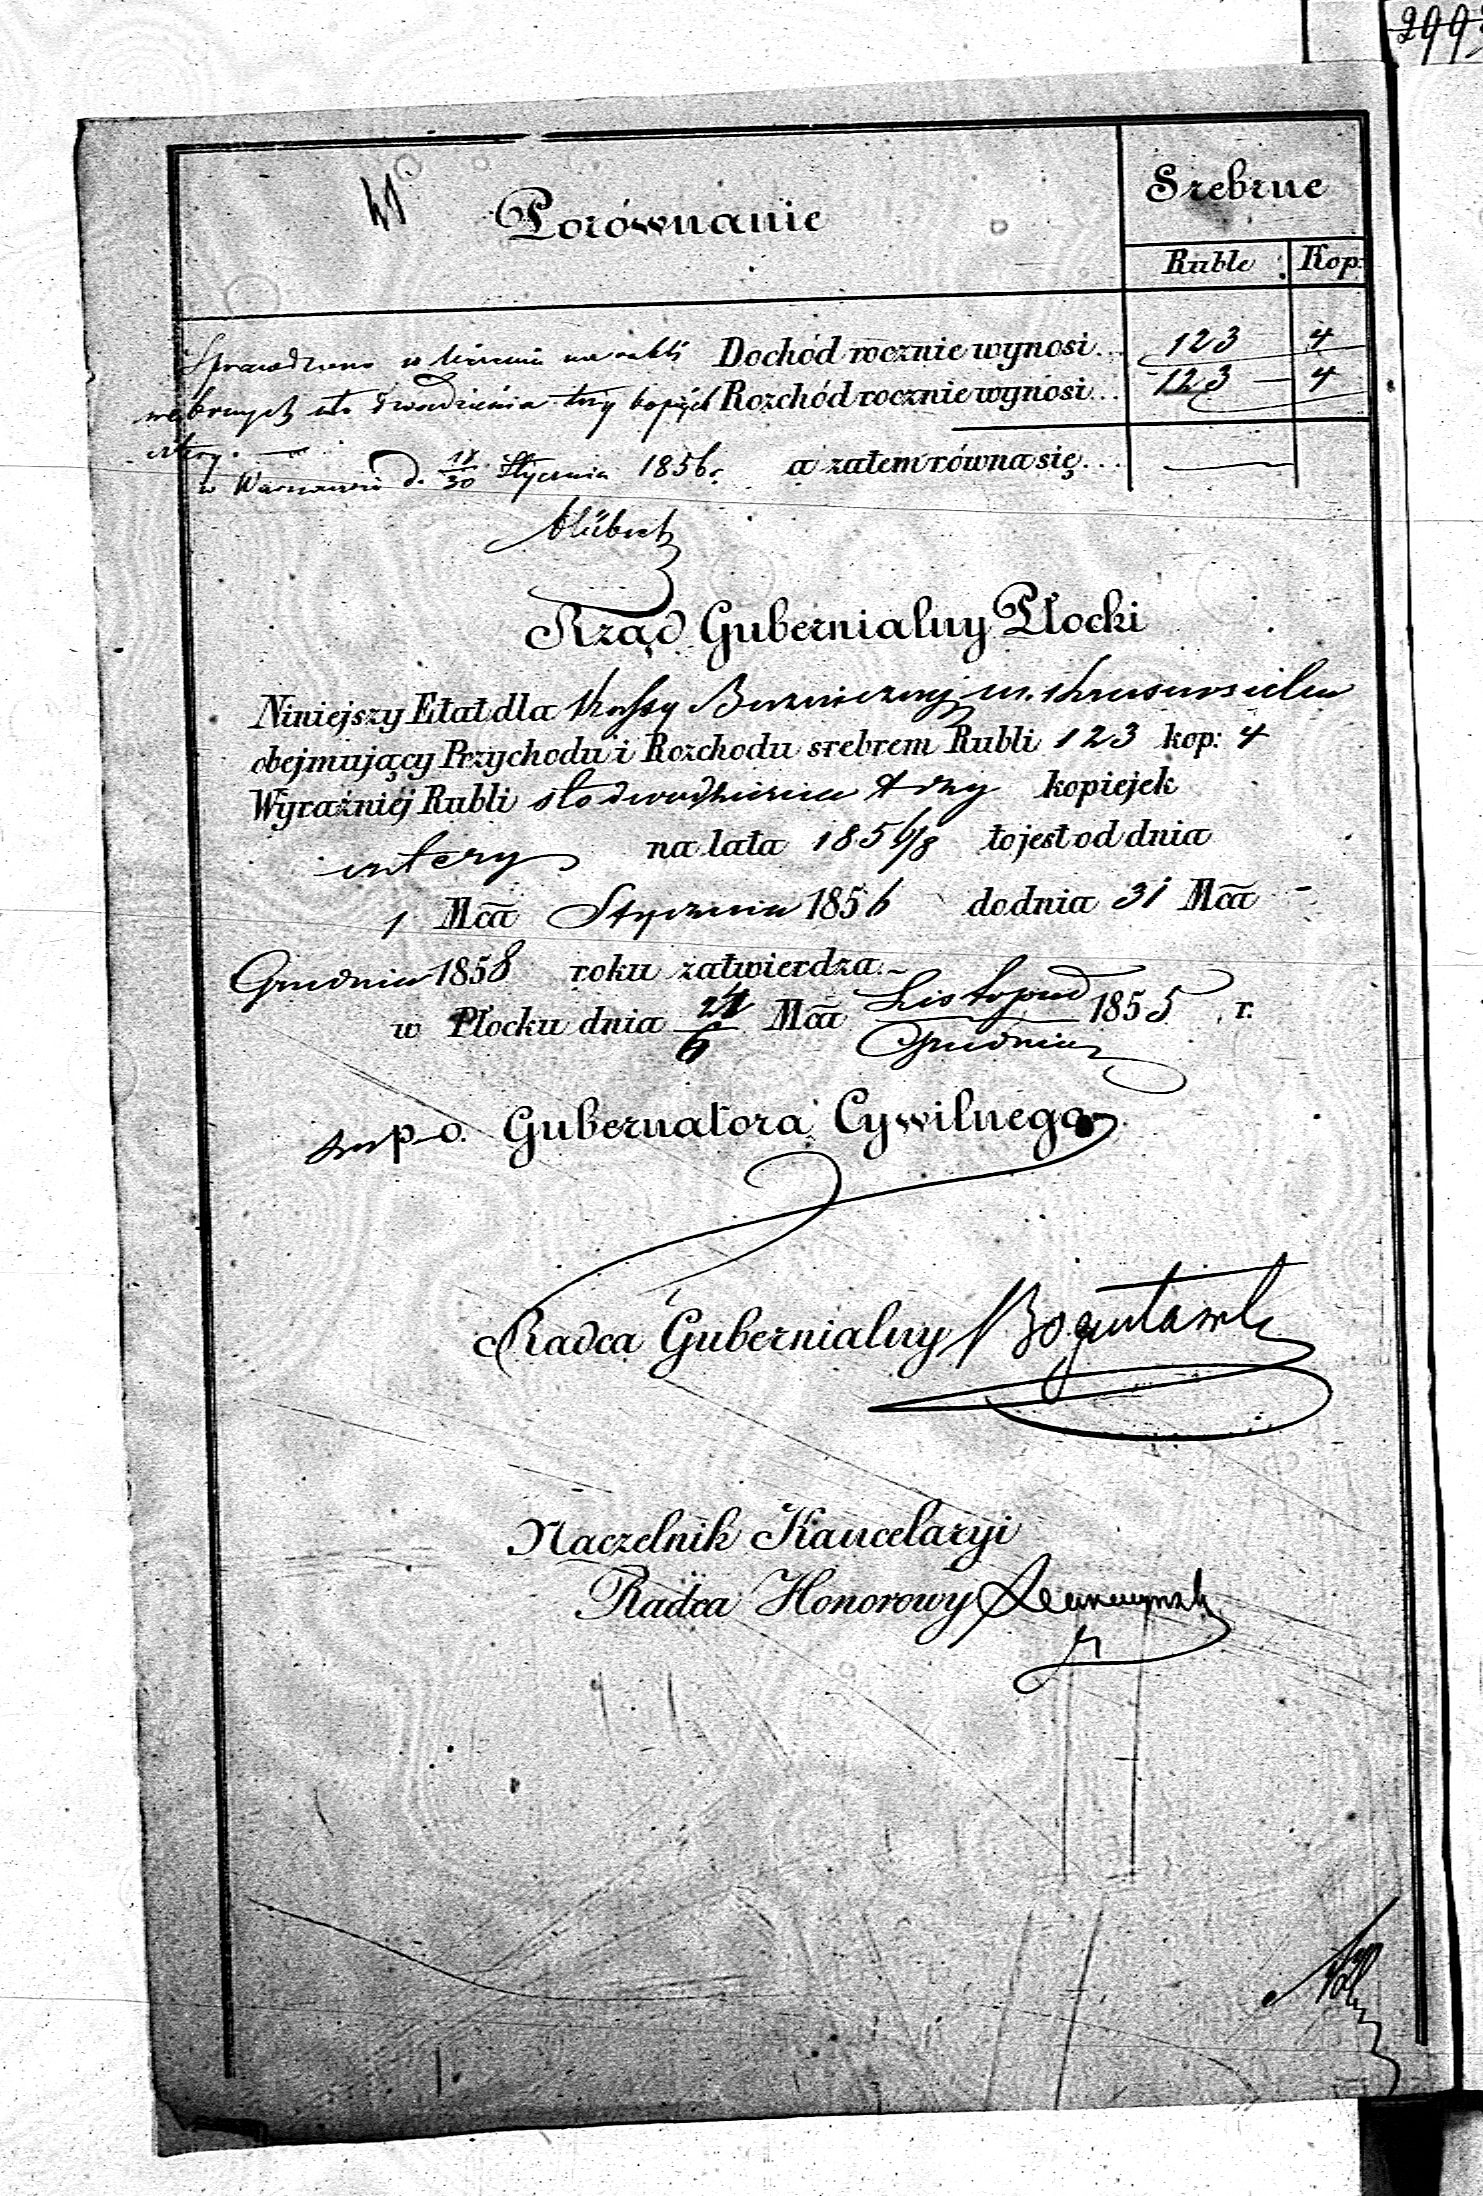 299
Porównanie
Srebrne
Ruble
Kop:
Sprawdzono Dochód rocznie wynosi... 123 4
srebrnych sto dwadzieścia trzy kopiejek Rozchód rocznie wynosi... 123 — 4
cztery. —
w Warszawie d. 18/30 Stycznia 1856 r. a zatem równa się... —
Rząd Gubernialny Płocki
Niniejszy Etat dla Kassy Bożniczney m.
obejmujący Przychodu i Rozchodu srebrem Rubli 123 kop: 4
Wyraźniéj Rubli sto dwadzieścia trzy kopiejek
cztery na lata 1856/8 to jest od dnia
1 Mca Stycznia 1856 do dnia 31 Mca
Grudnia 1858 roku zatwierdza.
w Płocku dnia 24/6 Mca Listopad/Grudnia 1855 r.
p. o. Gubernatora Cywilnego
Radca Gubernialny
Naczelnik Kancelaryi
Radca Honorowy